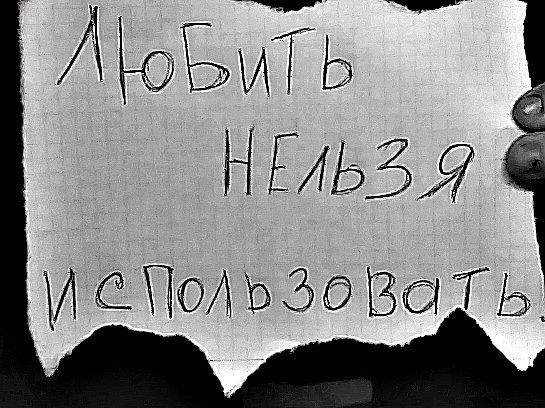 ЛЮБИТЬ
НЕЛЬЗЯ
ИСПОЛЬЗОВАТЬ!